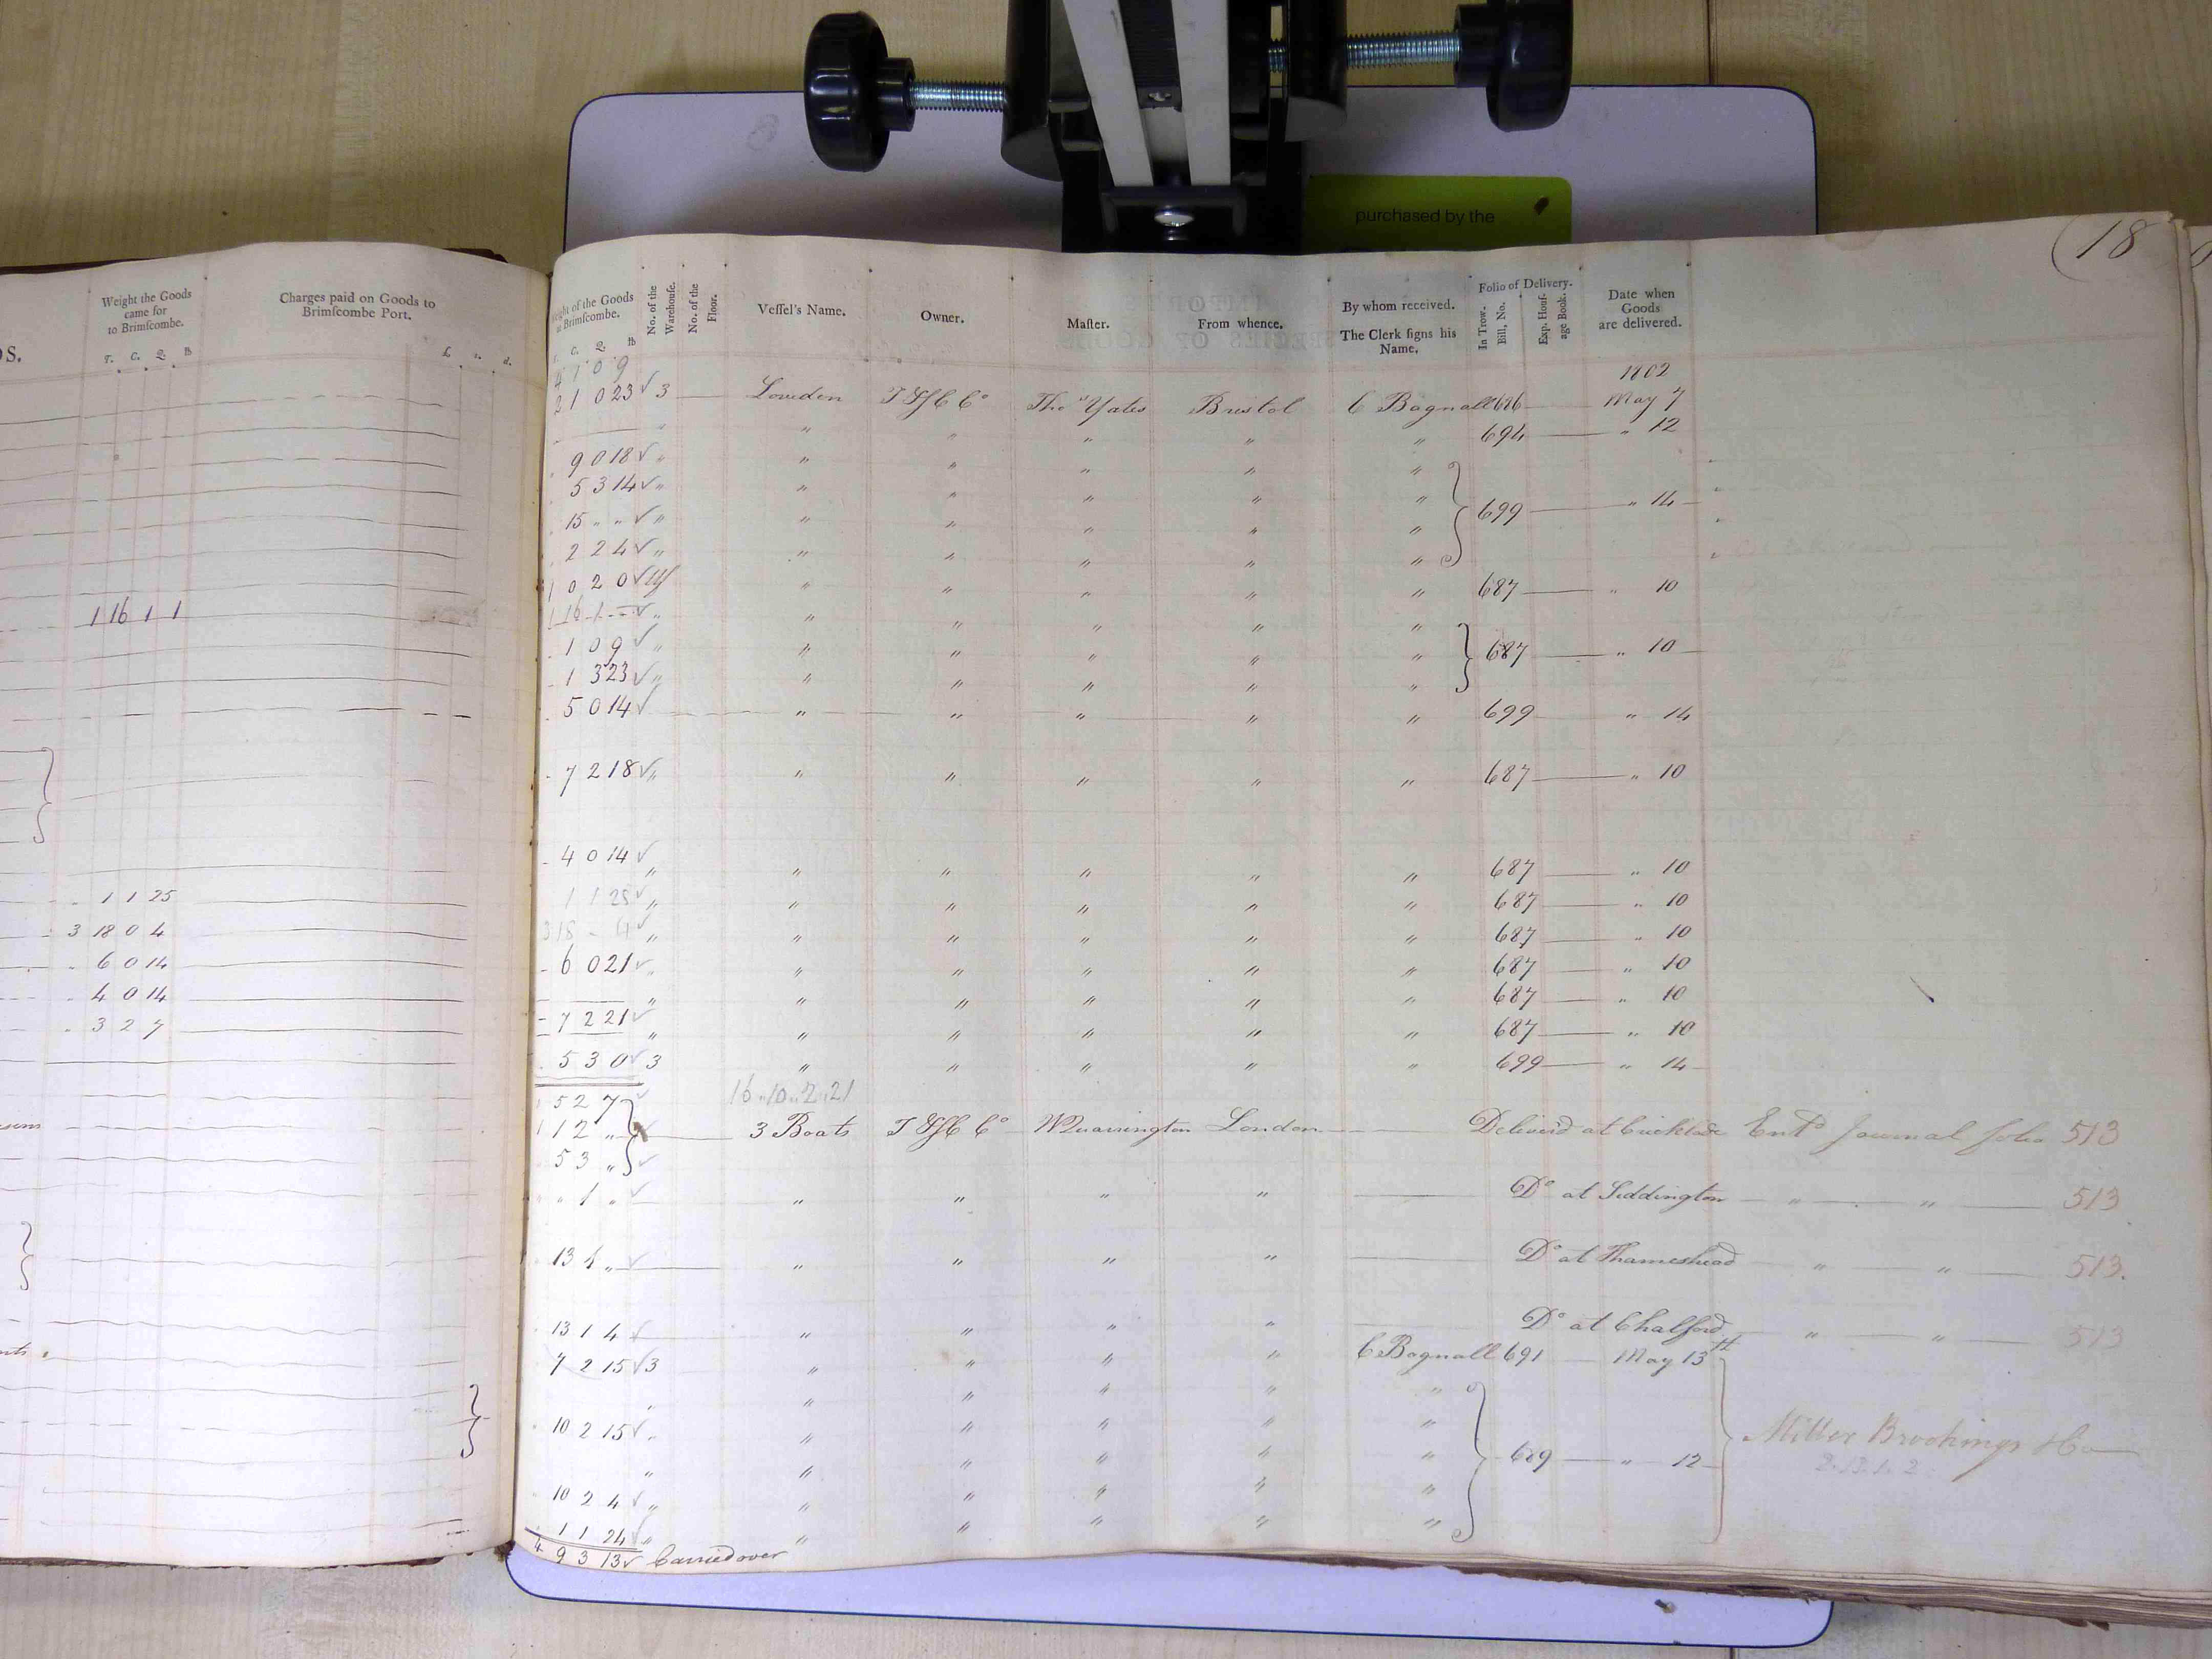 purchased by the
(18
OS.
Weight the Goods
came for
to Brimſcombe.
T. C. Q. lb
Charges paid on Goods to
Brimſcombe Port.
£. s. d.
1 16 1 1
1 1 25
3 18 0 4
6 0 14
4 0 14
3 2 7
of the Goods
at Brimſcombe.
C. Q. lb
No. of the
Warehouſe.
No. of the
Floor.
Veſſel's Name.
Owner.
Maſter.
From whence.
By whom received.
The Clerk ſigns his
Name.
Folio of Delivery.
In Trow.
Bill, No.
Exp. Houſ-
age Book.
Date when
Goods
are delivered.
4 1 0 9
1802
2 1 0 23 √ 3 Lowden Thos Yates Bristol C Bagnall 686 May 7
" " " " " " 694 " 12
9 0 18 √ " " " " " "
5 3 14 √ " " " " " " 699 " 14
15 " " √ " " " " " "
2 2 4 √ " " " " " "
1 0 2 0 √ " " " " " 687 " 10
1 16 1 - √ " " " " " "
1 0 9 √ " " " " " " 687 " 10
1 3 23 √ " " " " " "
5 0 14 √ " " " " " 699 " 14
7 2 18 √ " " " " " " 687 " 10
4 0 14 √ " " " " " " 687 " 10
1 1 25 √ " " " " " " 687 " 10
3 18 - 4 √ " " " " " " 687 " 10
6 0 21 √ " " " " " " 687 " 10
" " " " " " 687 " 10
7 2 21 √ " " " " " " 687 " 10
5 3 0 √ 3 " " " " " 699 " 14
16 " 10 " 2 " 21
5 2 7 √
1 1 2 " 3 Boats W Quarrington London Deliver'd at Cricklade Entd Journal folio 513
5 3 " √
" 1 " √ " " " " Do at Siddington " " 513
13 1 " √ " " " " Do at Thameshead " " 513.
13 1 4 √ " " " " Do at Chalford " " 513
7 2 15 √ 3 " " " " C Bagnall 691 May 13th
" " " " " "
10 2 15 √ " " " " " "
" " " " " " 689 " 12 Miller Brookings & Co
10 2 4 √ " " " " " "
1 1 24 √ " " " " " "
4 9 3 13 √ Carried over